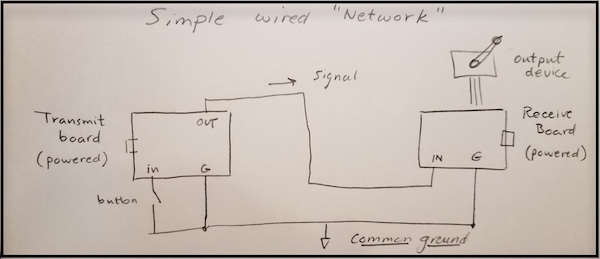 Simple wired "Network"
Signal
output
device
Transmit
board
(powered)
OUT
in
G
button
Receive
Board
(powered)
IN
G
Common ground